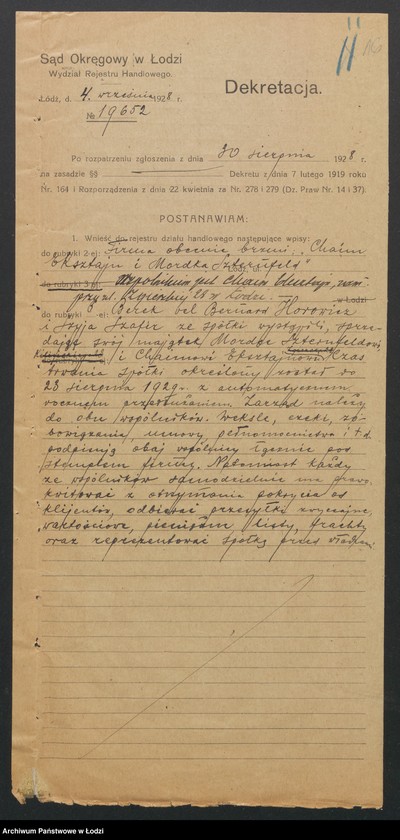 Sąd Okręgowy w Łodzi
Wydział Rejestru Handlowego.
Łódź, d. 4. września 1928 r.
№ 19652
Dekretacja.
Po rozpatrzeniu zgłoszenia z dnia 30 sierpnia 1928 r.
na zasadzie §§ Dekretu z dnia 7 lutego 1919 roku
Nr. 164 i Rozporządzenia z dnia 22 kwietnia za Nr. 278 i 279 (Dz. Praw Nr. 14 i 37).
POSTANAWIAM:
1. Wnieść do rejestru działu handlowego następujące wpisy:
do rubryki 2-ej: Firma obecnie brzmi: „Chaim
Eksztajn i Mordka Szternfeld"
do rubryki 3 Wspólnikiem jest Chaim Eksztajn, zam.
przy ul. 28 w Łodzi. w Łodzi
do rubryki -ej: Berek vel Bernard Horowicz
i Szyja Szafir ze spółki wystąpili, sprze-
dając swój majątek Mordce Szternfeldowi
i Chaimowi Eksztajnowi Czas
trwania spółki określony został do
23 sierpnia 1929 r. z automatycznem
rocznem przedłużaniem. Zarząd należy
do obu wspólników. Weksle, czeki, zo-
bowiązania, umowy pełnomocnictwa i t.d.
podpisują obaj wspólnicy łącznie pod
stemplem firmy. Natomiast każdy
ze wspólników samodzielnie ma prawo
kwitować z otrzymania pokrycia od
klijentów, odbierać przesyłki zwyczajne,
wartościowe, pieniężne listy, frachty
oraz reprezentować spółkę przed władzami
Archiwum Państwowe w Łodzi